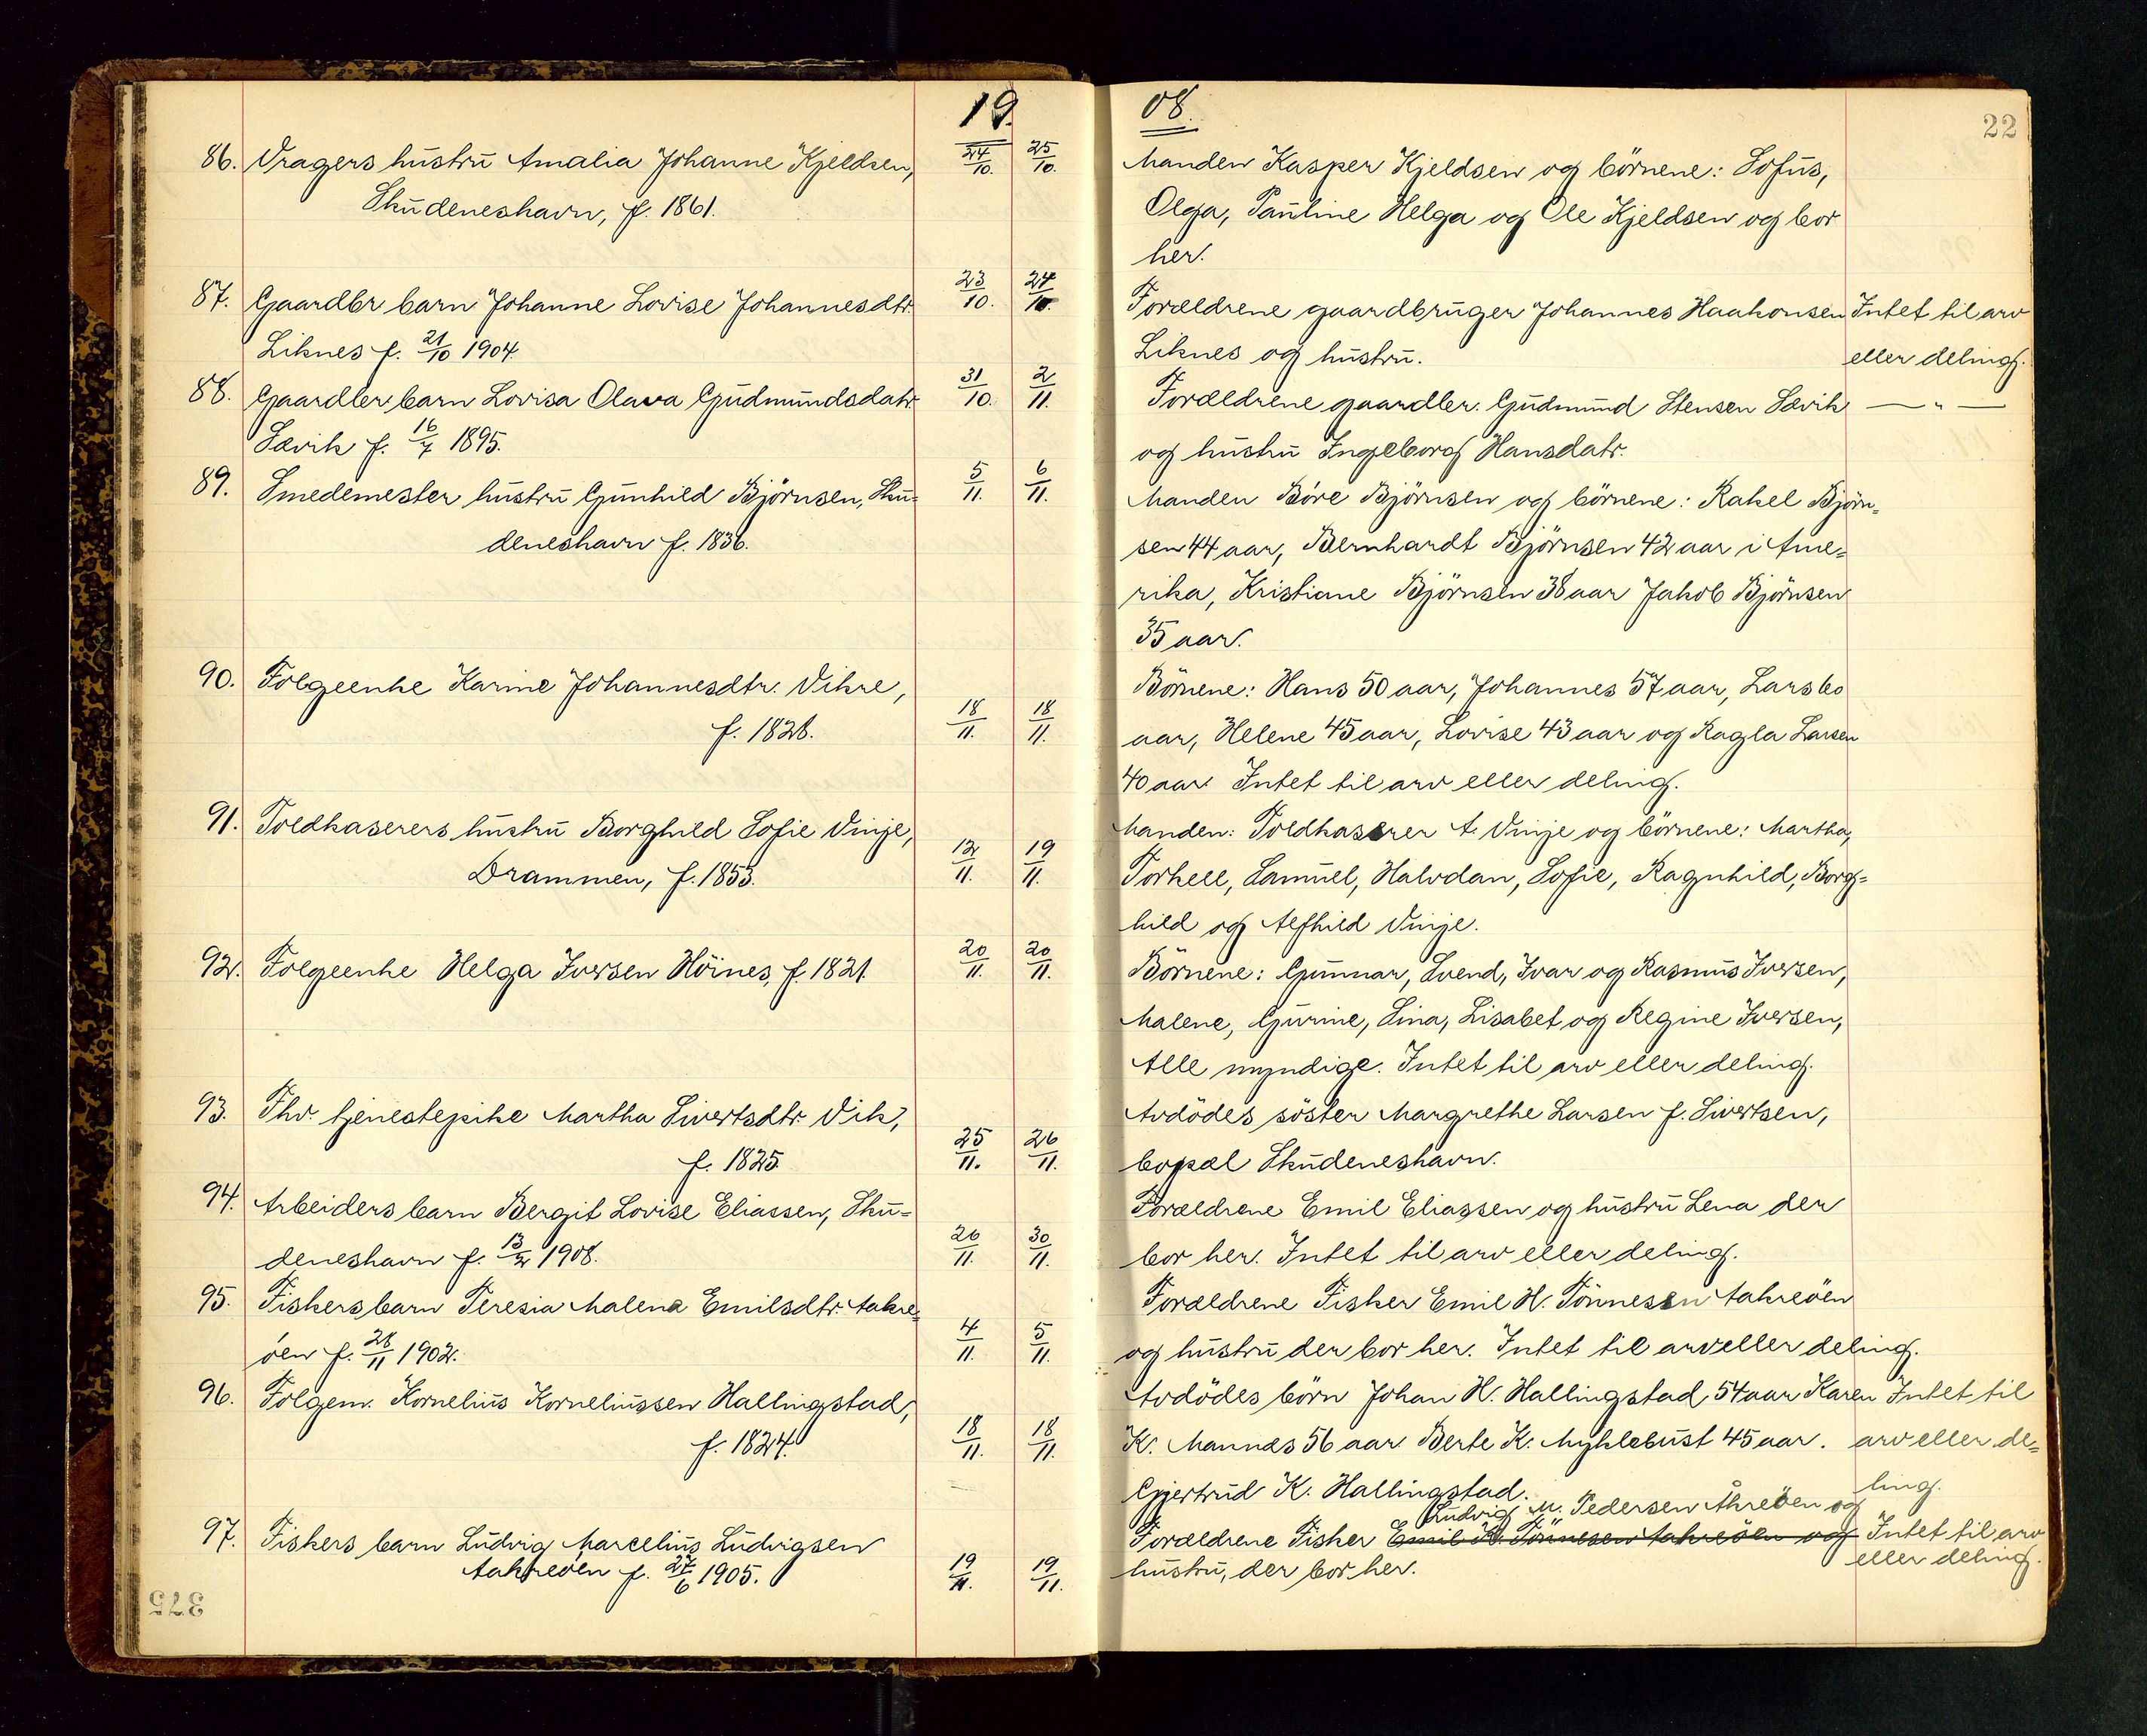 19.
08.
22
86. Vragers hustru Amalia Johanne Kjeldsen, 24/10. 25/10.
Skudeneshavn, f. 1861.
Manden Kasper Kjeldsen og börnene: Sofus,
Olga, Pauline Helga og Ole Kjeldsen og bor
her.
87. Gaardbr barn Johanne Lovise Johannesdtr. 23/10. 24/10.
Liknes f. 21/10 1904
Forældrene gaardbruger Johannes Haakonsen Intet til arv
Liknes og hustru. eller deling.
88. Gaardbr barn Lovisa Olava Gudmundsdatr. 31/10. 2/11.
Sævik f. 16/7 1895.
Forældrene gaardbr. Gudmund Stensen Sævik — " —
og hustru Ingeborg Hansdatr.
89. Smedemester hustru Gunhild Björnsen, Sku= 5/11. 6/11.
deneshavn f. 1836.
Manden Böre Björnsen og börnene: Rakel Björn=
sen 44 aar, Bernhardt Björnsen 42 aar i Ame=
rika, Kristiane Björnsen 38 aar Jakob Björnsen
35 aar.
90. Folgeenke Karine Johannesdtr. Vikre,
f. 1828. 18/11. 18/11.
Börnene: Hans 50 aar, Johannes 57 aar, Lars 60
aar, Helene 45 aar, Lovise 43 aar og Ragla Larsen
40 aar Intet til arv eller deling.
91. Toldkaserers hustru Borghild Sofie Vinje,
Drammen, f. 1853. 12/11. 19/11.
Manden: Toldkaserer A. Vinje og börnene: Martha,
Torkell, Samuel, Halvdan, Sofie, Ragnhild, Borg=
hild og Alfhild Vinje.
92. Folgeenke Helga Iversen Höines, f. 1821 20/11. 20/11.
Börnene: Gunnar, Svend, Ivar og Rasmus Iversen,
Malene, Gurine, Sina, Lisabet og Regine Iversen,
Alle myndige. Intet til arv eller deling.
93. Fhv. tjenestepike Martha Sivertsdtr. Vik,
f. 1825 25/11. 26/11.
Avdödes söster Margrethe Larsen f. Sivertsen,
bopæl Skudeneshavn.
94. Arbeiders barn Bergit Lovise Eliassen, Sku=
deneshavn f. 13/2 1908. 26/11. 30/11.
Forældrene Emil Eliassen og hustru Lena der
bor her. Intet til arv eller deling.
95. Fiskers barn Teresia Malena Emilsdtr. Aakre=
öen f. 28/11 1902. 4/11. 5/11.
Forældrene Fisker Emil H. Tönnesen Aakreöen
og hustru der bor her. Intet til arv eller deling.
96. Folgem. Kornelius Korneliussen Hallingstad,
f. 1824. 18/11. 18/11.
Avdödes börn Johan H. Hallingstad 54 aar Karen Intet til
K. Mannes 56 aar Berte K. Myklebust 45 aar. arv eller de=
Gjertrud K. Hallingstad. ling.
Ludvig M. Pedersen Åhreöen og
97. Fiskers barn Ludvig Marcelius Ludvigsen
Aakreöen f. 27/6 1905. 19/11. 19/11.
Forældrene Fisker Emil H. Tönnesen Aakreöen og Intet til arv
hustru, der bor her. eller deling.
375